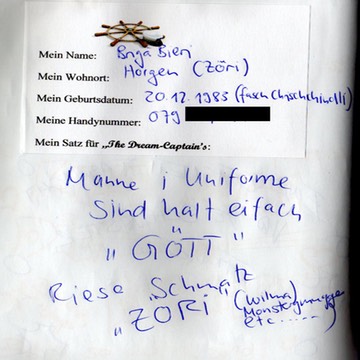 Mein Name: Briga Bieri
Mein Wohnort: Horgen (Zöri)
Mein Geburtsdatum: 20.12.1983 (fasch
Meine Handynummer: 079
Mein Satz für „The Dream-Captain's:
Manne i Uniforme
Sind halt eifach
"GÖTT"
Riese Schmatz
"ZÖRI (Wilma)
etc.....)